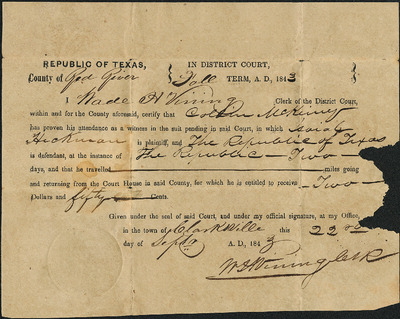 REPUBLIC OF TEXAS, IN DISTRICT COURT,
County of Red River Fall TERM, A. D., 1843
I Wade H Vining Clerk of the District Court,
within and for the County aforesaid, certify that Collin McKinney
has proven his attendance as a witness in the suit pending in said Court, in which Sarah
Hickman is plaintiff, and The Republic of Texas
is defendant, at the instance of The Republic — Two —
days, and that he travelled miles going
and returning from the Court House in said County, for which he is entitled to receive — Two —
Dollars and fifty Cents.
Given under the seal of said Court, and under my official signature, at my Office,
in the town of Clarksville this 22nd
day of Sept A. D., 1843
W H Vining Clerk